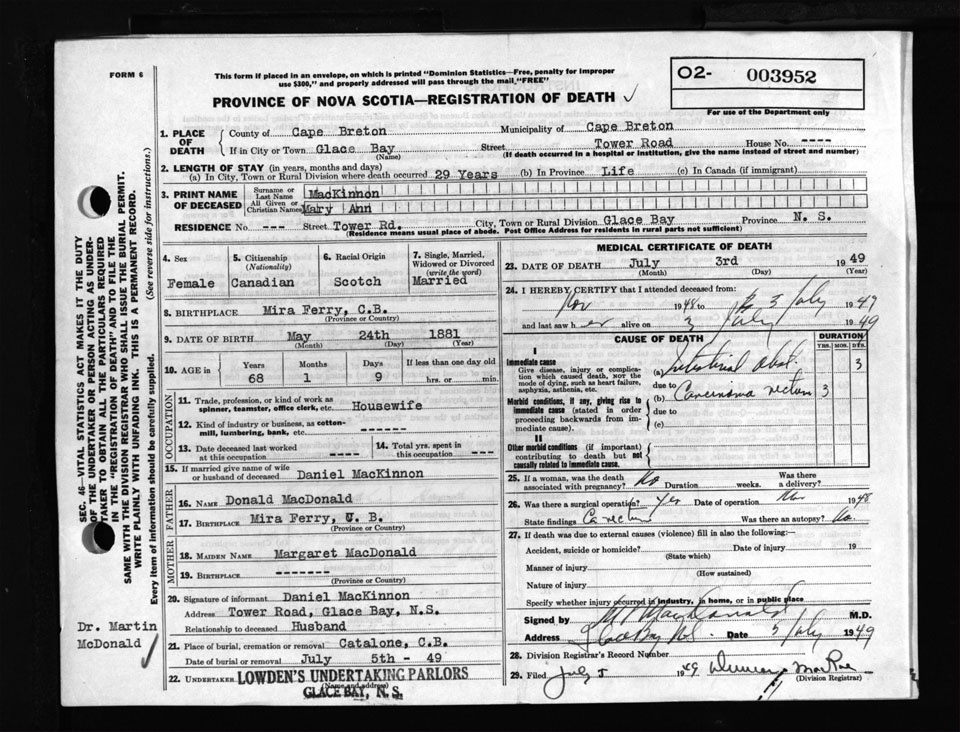 FORM 6
This form if placed in an envelope, on which is printed "Dominion Statistics—Free, penalty for improper
use $300," and properly addressed will pass through the mail "FREE"
O2- 003952
For use of the Department only
PROVINCE OF NOVA SCOTIA—REGISTRATION OF DEATH ✓
1. PLACE OF DEATH
County of Cape Breton Municipality of Cape Breton
If in City or Town Glace Bay Street Tower Road House No. ----
(Name) (If death occurred in a hospital or institution, give the name instead of street and number)
2. LENGTH OF STAY (in years, months and days)
(a) In City, Town or Rural Division where death occurred 29 Years (b) In Province Life (c) In Canada (if immigrant)
3. PRINT NAME OF DECEASED
Surname or Last Name MacKinnon
All Given or Christian Names Mary Ann
RESIDENCE No. --- Street Tower Rd. City, Town or Rural Division Glace Bay Province N. S.
(Residence means usual place of abode. Post Office Address for residents in rural parts not sufficient)
4. Sex Female
5. Citizenship (Nationality) Canadian
6. Racial Origin Scotch
7. Single, Married, Widowed or Divorced (write the word) Married
8. BIRTHPLACE Mira Ferry, C.B.
(Province or Country)
9. DATE OF BIRTH May 24th 1881
(Month) (Day) (Year)
10. AGE in Years 68 Months 1 Days 9 If less than one day old hrs. or min.
OCCUPATION
11. Trade, profession, or kind of work as spinner, teamster, office clerk, etc. Housewife
12. Kind of industry or business, as cotton-mill, lumbering, bank, etc. -------
13. Date deceased last worked at this occupation ----
14. Total yrs. spent in this occupation ---
15. If married give name of wife or husband of deceased Daniel MacKinnon
FATHER
16. NAME Donald MacDonald
17. BIRTHPLACE Mira Ferry, C. B.
(Province or Country)
MOTHER
18. MAIDEN NAME Margaret MacDonald
19. BIRTHPLACE -------
(Province or Country)
20. Signature of informant Daniel MacKinnon
Address Tower Road, Glace Bay, N.S.
Relationship to deceased Husband
21. Place of burial, cremation or removal Catalone, C.B.
Date of burial or removal July 5th - 49
22. UNDERTAKER LOWDEN'S UNDERTAKING PARLORS
(Name and address)
GLACE BAY, N. S.
MEDICAL CERTIFICATE OF DEATH
23. DATE OF DEATH July 3rd 1949
(Month) (Day) (Year)
24. I HEREBY CERTIFY that I attended deceased from:
Nov 1948 to 3 July 1949
and last saw her alive on 3 July 1949
CAUSE OF DEATH
DURATION
YRS. MOS. DYS.
I
Immediate cause
Give disease, injury or complication which caused death, nor the mode of dying, such as heart failure, asphyxia, asthenia, etc.
(a) Intestinal obst. 3
due to
Morbid conditions, if any, giving rise to immediate cause (stated in order proceeding backwards from immediate cause).
(b) Carcinoma rectum 3
due to
(c)
II
Other morbid conditions (if important) contributing to death but not causally related to immediate cause.
25. If a woman, was the death associated with pregnancy? No Duration weeks. Was there a delivery?
26. Was there a surgical operation? Yes Date of operation Nov 1948
State findings Ca rectum Was there an autopsy? No
27. If death was due to external causes (violence) fill in also the following:—
Accident, suicide or homicide? Date of injury 19
(State which)
Manner of injury
(How sustained)
Nature of injury
Specify whether injury occurred in industry, in home, or in public place
Signed by M MacDonald M.D.
Address Glace Bay N.S. Date 5 July 1949
28. Division Registrar's Record Number
29. Filed July 5 1949 MacRae
(Division Registrar)
SEC. 46—VITAL STATISTICS ACT MAKES IT THE DUTY
OF THE UNDERTAKER OR PERSON ACTING AS UNDER-
TAKER TO OBTAIN ALL THE PARTICULARS REQUIRED
IN THE "REGISTRATION OF DEATH" AND TO FILE THE
SAME WITH THE DIVISION REGISTRAR WHO SHALL ISSUE THE BURIAL PERMIT.
WRITE PLAINLY WITH UNFADING INK. THIS IS A PERMANENT RECORD.
Every item of information should be carefully supplied. (See reverse side for instructions.)
Dr. Martin
McDonald ✓